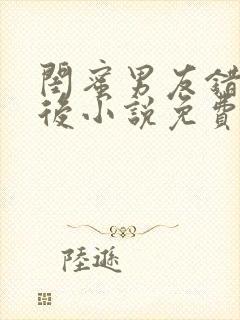 閨蜜男友錯
後小說免費
陸遜